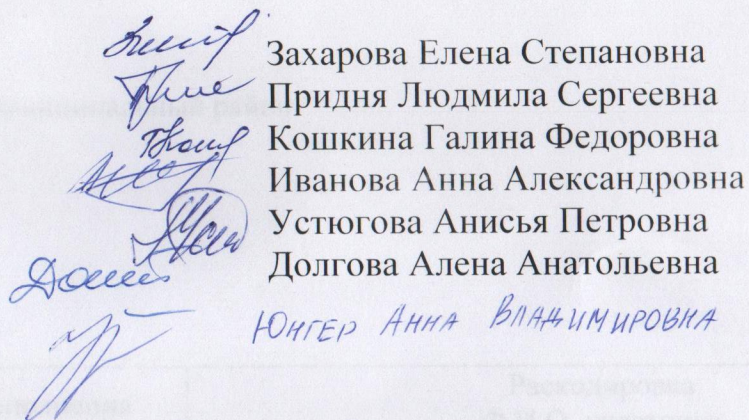 Захарова Елена Степановна
Придня Людмила Сергеевна
Кошкина Галина Федоровна
Иванова Анна Александровна
Устюгова Анисья Петровна
Долгова Алена Анатольевна
Юнгер Анна Владимировна